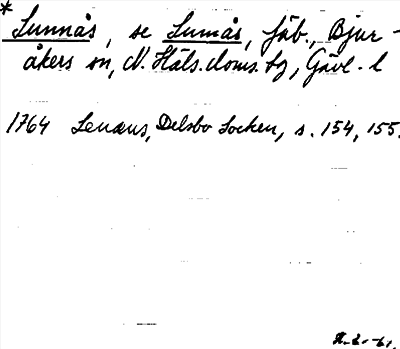 * Sunnås, se Sumås, fäb., Bjur-
åkers sn, N. Häls. doms. bg, Gävl. l
1764 Lenæus, Delsbo Socken, s. 154, 155.